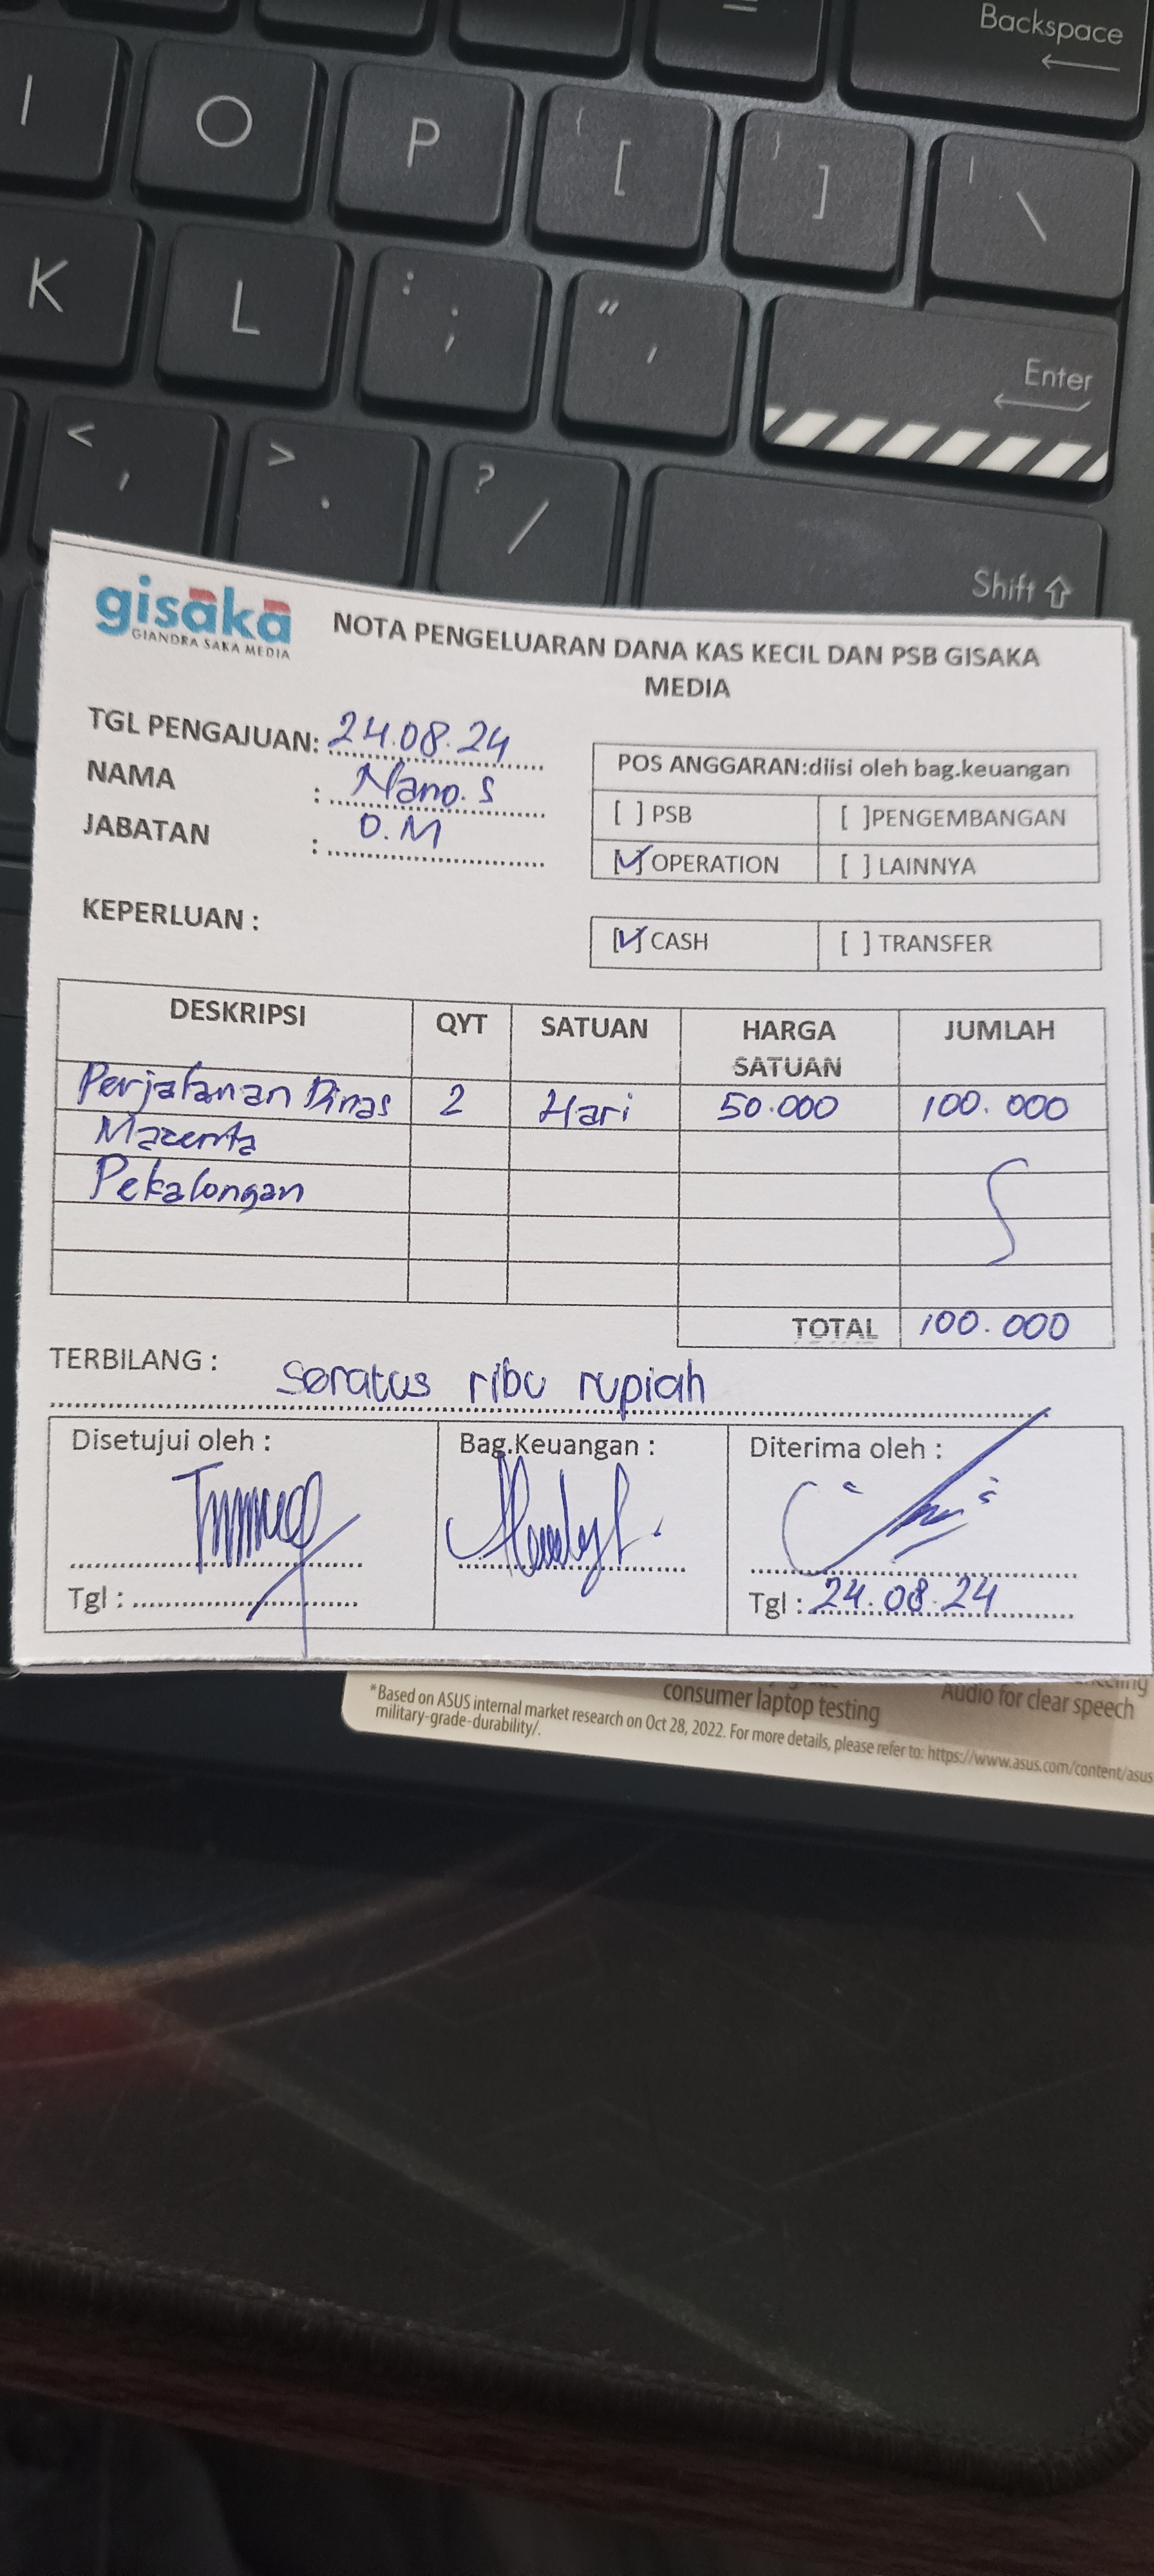 Backspace
I O P { [ } ] | \
K L : ; " ' Enter
< , > . ? / Shift
gisaka
GIANDRA SAKA MEDIA
NOTA PENGELUARAN DANA KAS KECIL DAN PSB GISAKA
MEDIA
TGL PENGAJUAN: 24.08.24
NAMA : Nano. S
JABATAN : O.M
POS ANGGARAN:diisi oleh bag.keuangan
[ ] PSB [ ]PENGEMBANGAN
[✓] OPERATION [ ] LAINNYA
KEPERLUAN :
[✓] CASH [ ] TRANSFER
DESKRIPSI QYT SATUAN HARGA SATUAN JUMLAH
Perjalanan Dinas 2 Hari 50.000 100.000
Mazenta
Pekalongan
TOTAL 100.000
TERBILANG : Seratus ribu rupiah
Disetujui oleh : Bag.Keuangan : Diterima oleh :
Tgl : Tgl : 24.08.24
consumer laptop testing Audio for clear speech
*Based on ASUS internal market research on Oct 28, 2022. For more details, please refer to: https://www.asus.com/content/asus
military-grade-durability/.